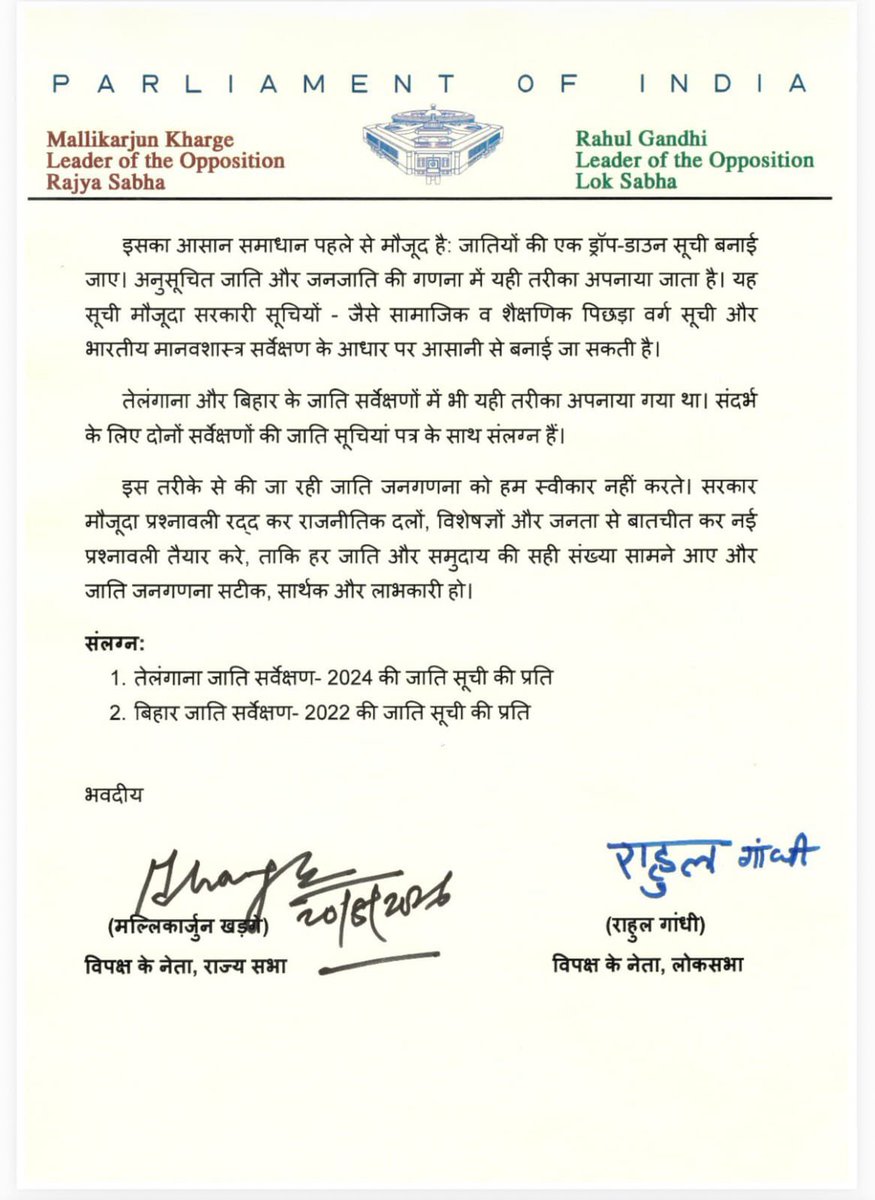 PARLIAMENT OF INDIA
Mallikarjun Kharge
Leader of the Opposition
Rajya Sabha
Rahul Gandhi
Leader of the Opposition
Lok Sabha
इसका आसान समाधान पहले से मौजूद है: जातियों की एक ड्रॉप-डाउन सूची बनाई
जाए। अनुसूचित जाति और जनजाति की गणना में यही तरीका अपनाया जाता है। यह
सूची मौजूदा सरकारी सूचियों - जैसे सामाजिक व शैक्षणिक पिछड़ा वर्ग सूची और
भारतीय मानवशास्त्र सर्वेक्षण के आधार पर आसानी से बनाई जा सकती है।
तेलंगाना और बिहार के जाति सर्वेक्षणों में भी यही तरीका अपनाया गया था। संदर्भ
के लिए दोनों सर्वेक्षणों की जाति सूचियां पत्र के साथ संलग्न हैं।
इस तरीके से की जा रही जाति जनगणना को हम स्वीकार नहीं करते। सरकार
मौजूदा प्रश्नावली रद्द कर राजनीतिक दलों, विशेषज्ञों और जनता से बातचीत कर नई
प्रश्नावली तैयार करे, ताकि हर जाति और समुदाय की सही संख्या सामने आए और
जाति जनगणना सटीक, सार्थक और लाभकारी हो।
संलग्न:
1. तेलंगाना जाति सर्वेक्षण- 2024 की जाति सूची की प्रति
2. बिहार जाति सर्वेक्षण- 2022 की जाति सूची की प्रति
भवदीय
राहुल गांधी
(मल्लिकार्जुन खड़गे)
(राहुल गांधी)
विपक्ष के नेता, राज्य सभा
विपक्ष के नेता, लोकसभा